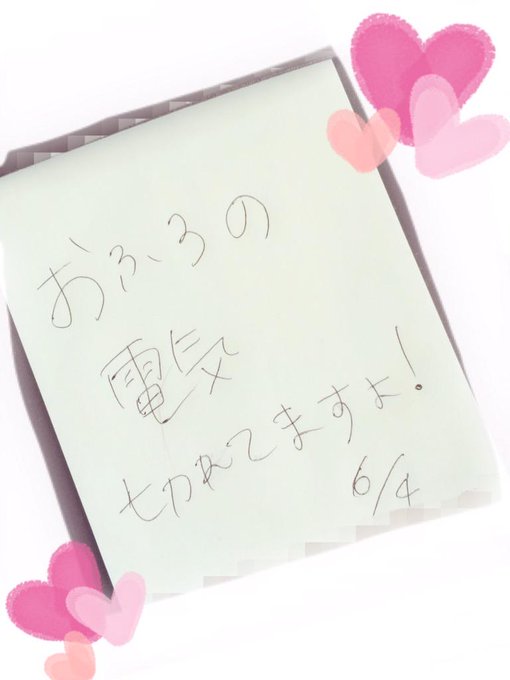 おふろの
電気
切れてますよ!
6/4